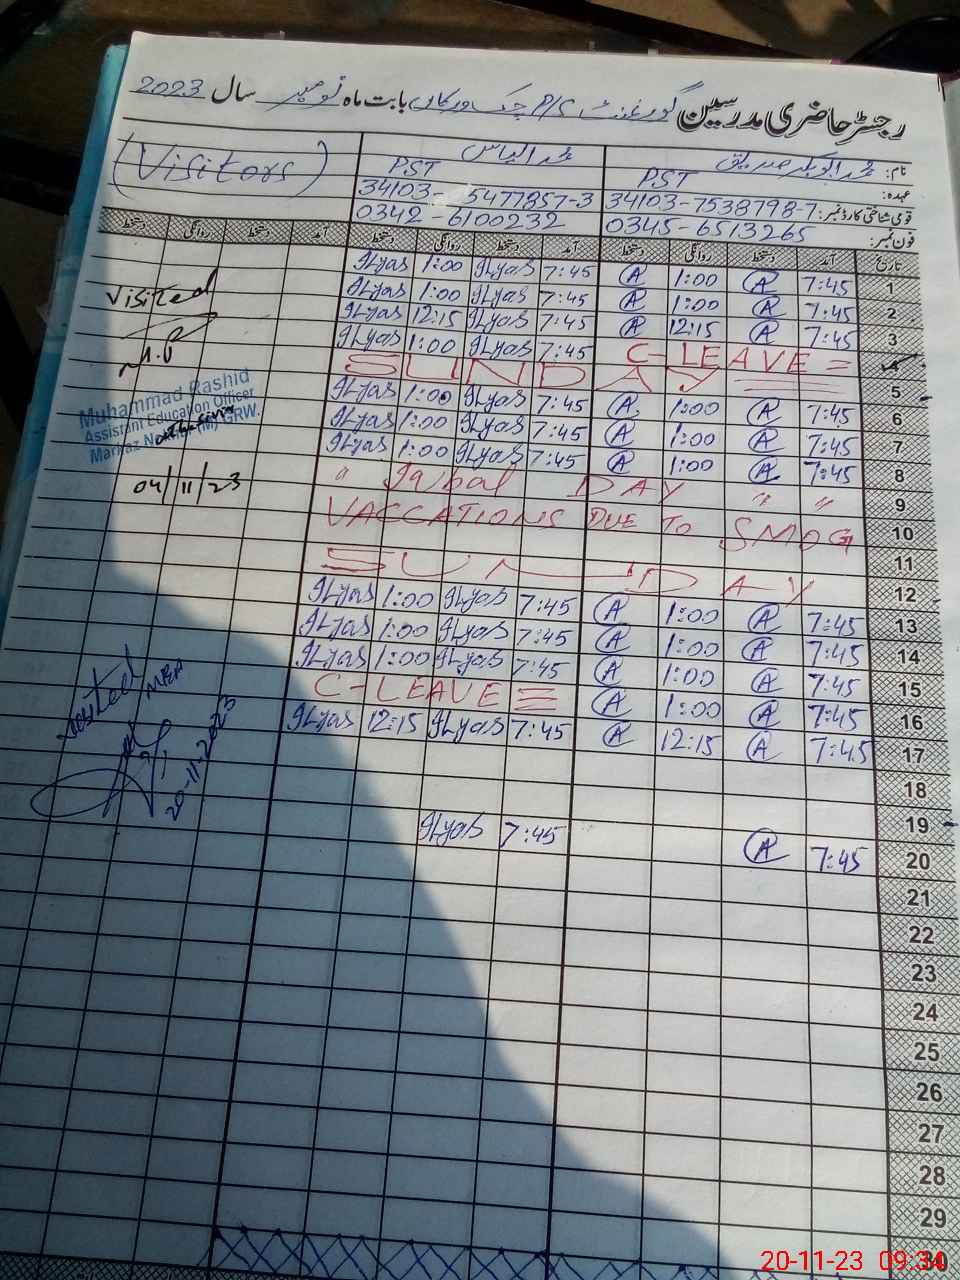 رجسٹر حاضری مدرسین گورنمنٹ P/S چک ورکاں بابت ماہ نومبر سال 2023
نام: محمد ابوبکر صدیق محمد الیاس (Visitors)
عہدہ: PST PST
قومی شناختی کارڈ نمبر: 34103-7538798-7 34103-5477857-3
فون نمبر: 0345-6513265 0342-6100232
تاریخ آمد دستخط روانگی دستخط آمد دستخط روانگی دستخط آمد دستخط روانگی دستخط
1 7:45 A 1:00 A 7:45 Ilyas 1:00 Ilyas
2 7:45 A 1:00 A 7:45 Ilyas 1:00 Ilyas
3 7:45 A 12:15 A 7:45 Ilyas 12:15 Ilyas
4 C-LEAVE = 7:45 Ilyas 1:00 Ilyas
5 SUNDAY
6 7:45 A 1:00 A 7:45 Ilyas 1:00 Ilyas
7 7:45 A 1:00 A 7:45 Ilyas 1:00 Ilyas
8 7:45 A 1:00 A 7:45 Ilyas 1:00 Ilyas
9 " Iqbal DAY " "
10 VACCATIONS DUE To SMOG
11
12 SUNDAY
13 7:45 A 1:00 A 7:45 Ilyas 1:00 Ilyas
14 7:45 A 1:00 A 7:45 Ilyas 1:00 Ilyas
15 7:45 A 1:00 A 7:45 Ilyas 1:00 Ilyas
16 7:45 A 1:00 A C-LEAVE =
17 7:45 A 12:15 A 7:45 Ilyas 12:15 Ilyas
18
19
20 7:45 A 7:45 Ilyas
21
22
23
24
25
26
27
28
29
30
Visited
Muhammad Rashid
Assistant Education Officer
Markaz (M) GRW.
04/11/23
Visited
MEA
20-11-2023
20-11-23 09:34